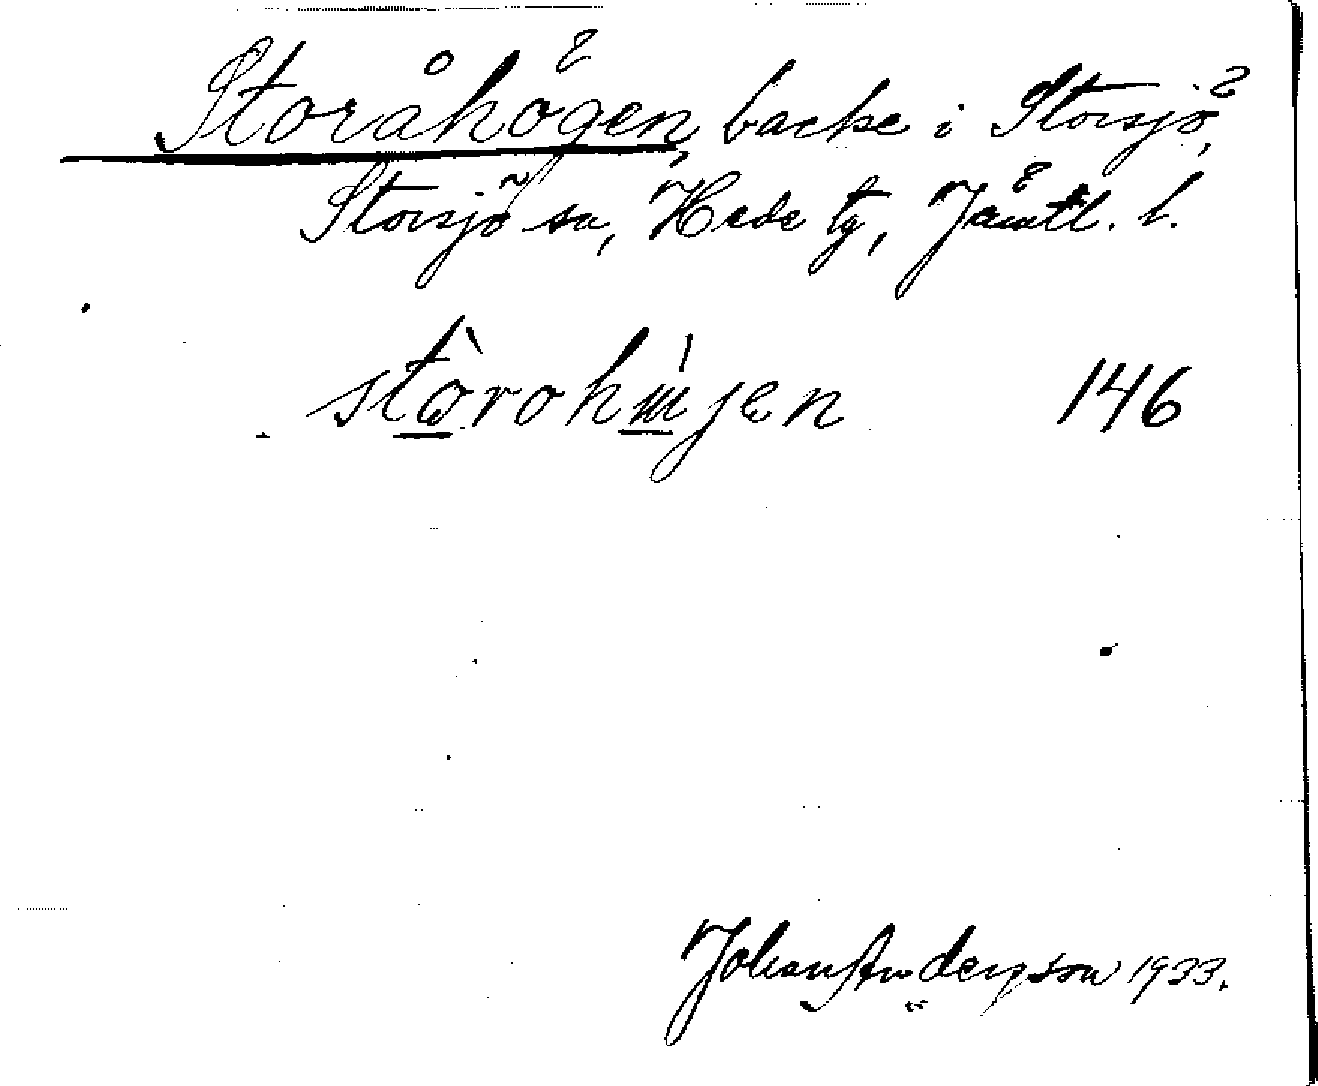 Storåhögen, backe i Storsjö,
Storsjö sn, Hede tg, Jämtl. l.
stòrohɯ́jen 146
Johan Anderson 1933.